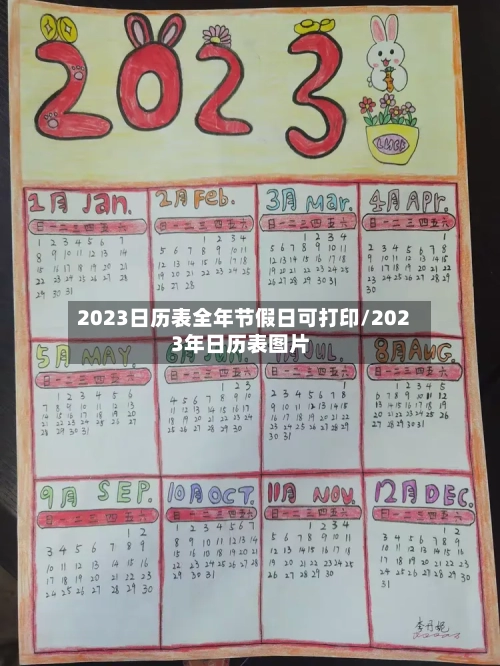 2023
LUCK
1月 Jan.
日一二三四五六
1 2 3 4 5 6 7
8 9 10 11 12 13 14
15 16 17 18 19 20 21
22 23 24 25 26 27 28
29 30 31
2月 Feb.
日一二三四五六
1 2 3 4
5 6 7 8 9 10 11
12 13 14 15 16 17 18
19 20 21 22 23 24 25
26 27 28
3月 Mar.
日一二三四五六
1 2 3 4
5 6 7 8 9 10 11
12 13 14 15 16 17 18
19 20 21 22 23 24 25
26 27 28 29 30 31
4月 Apr.
日一二三四五六
1
2 3 4 5 6 7 8
9 10 11 12 13 14 15
16 17 18 19 20 21 22
23 24 25 26 27 28 29
30
2023日历表全年节假日可打印/202
3年日历表图片
5月 MAY.
日一二三四五六
1 2 3 4 5 6
7 8 9 10 11 12 13
14 15 16 17 18 19 20
21 22 23 24 25 26 27
28 29 30 31
日一二三四五六
1 2 3
4 5 6 7 8 9 10
11 12 13 14 15 16 17
18 19 20 21 22 23 24
25 26 27 28 29 30
JUL.
日一二三四五六
1
2 3 4 5 6 7 8
9 10 11 12 13 14 15
16 17 18 19 20 21 22
23 24 25 26 27 28 29
30 31
8月 AUG.
日一二三四五六
1 2 3 4 5
6 7 8 9 10 11 12
13 14 15 16 17 18 19
20 21 22 23 24 25 26
27 28 29 30 31
9月 SEP.
日一二三四五六
1 2
3 4 5 6 7 8 9
10 11 12 13 14 15 16
17 18 19 20 21 22 23
24 25 26 27 28 29 30
10月 OCT.
日一二三四五六
1 2 3 4 5 6 7
8 9 10 11 12 13 14
15 16 17 18 19 20 21
22 23 24 25 26 27 28
29 30 31
11月 NOV.
日一二三四五六
1 2 3 4
5 6 7 8 9 10 11
12 13 14 15 16 17 18
19 20 21 22 23 24 25
26 27 28 29 30
12月 DEC.
日一二三四五六
1 2
3 4 5 6 7 8 9
10 11 12 13 14 15 16
17 18 19 20 21 22 23
24 25 26 27 28 29 30
31